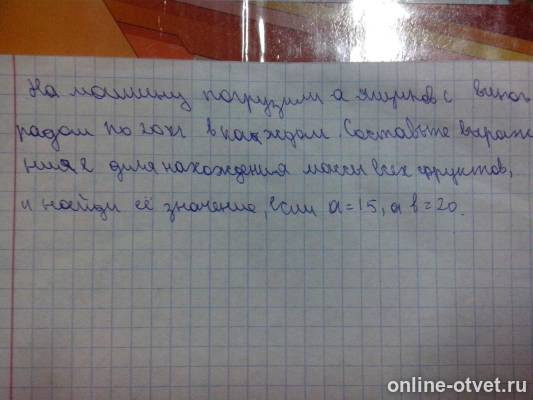 На машину погрузили а ящиков с виног
радом по 20кг в каждом. Составьте выраже
ния для нахождения массы всех фруктов,
и найди её значение, если а=15, а в=20.
online-otvet.ru